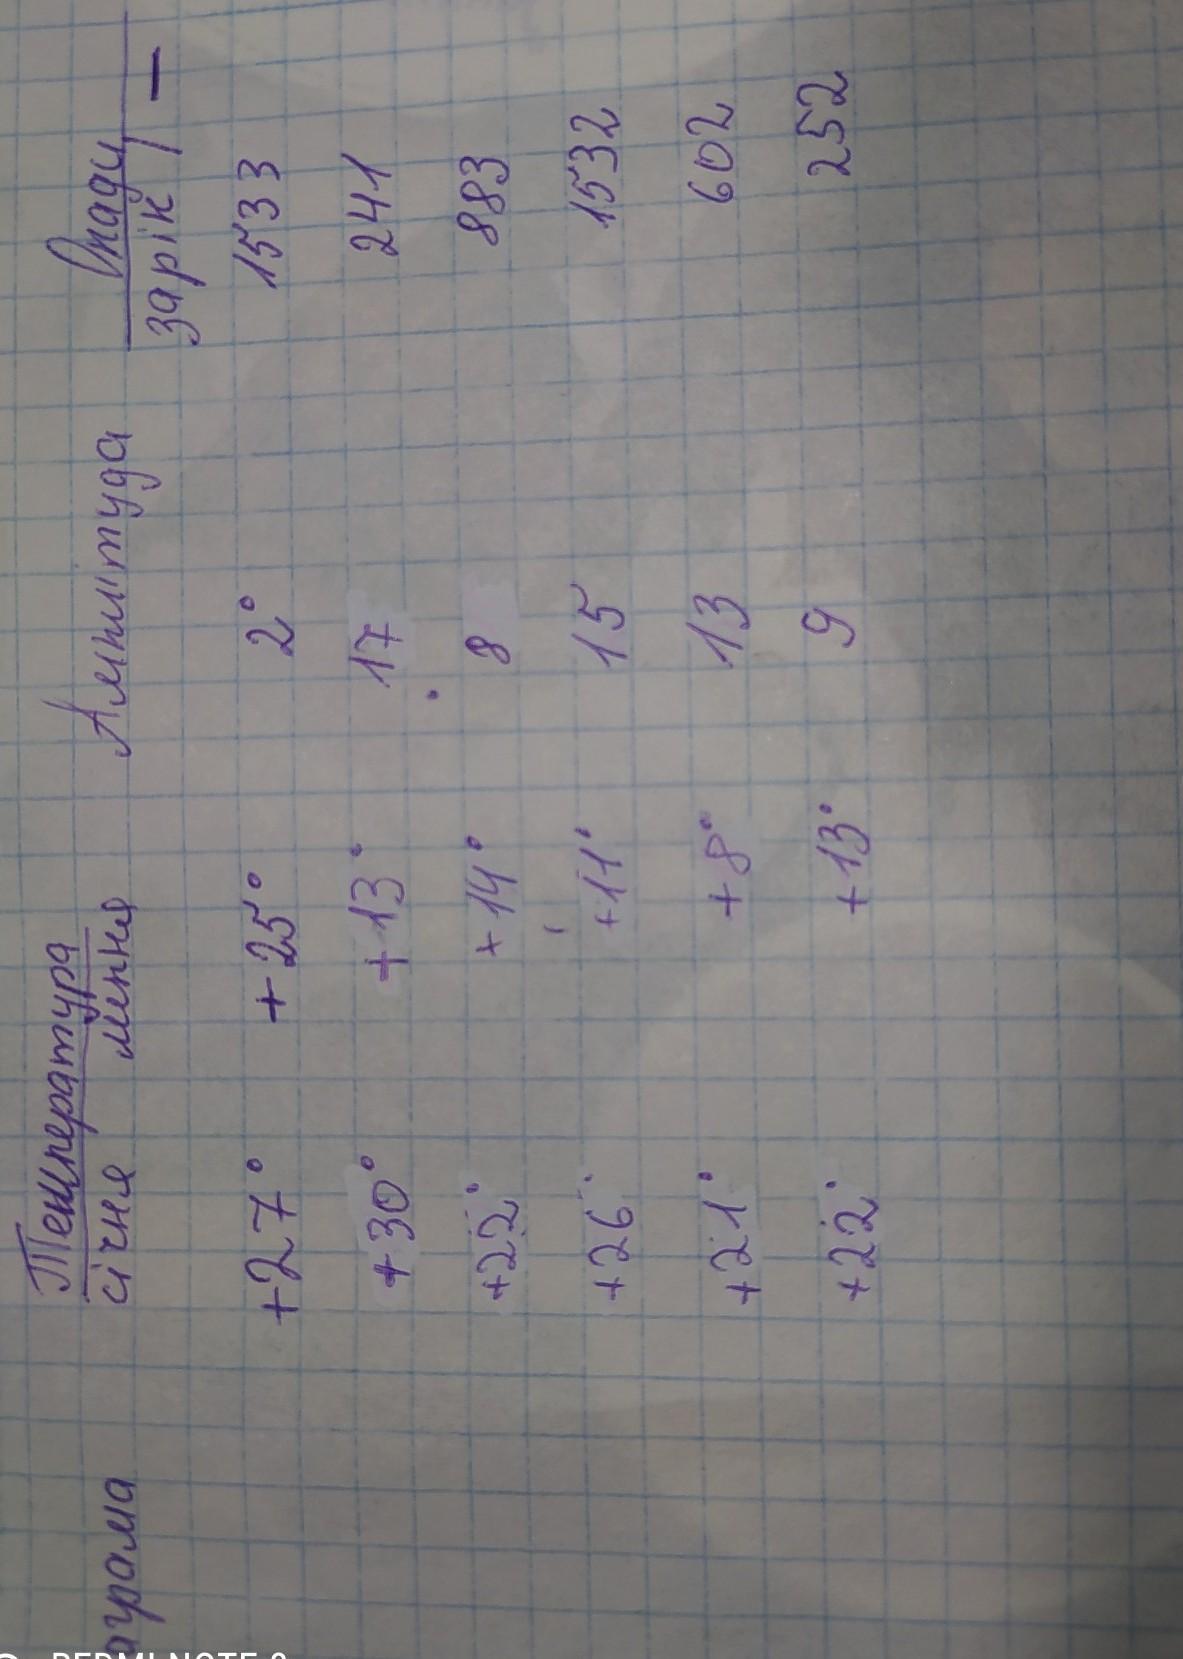 Температура
аграма січня липня Амплітуда Опади
за рік
+27° +25° 2° 1533
+30° +13° 17 241
+22° +14° 8 883
+26° +11° 15 1532
+21° +8° 13 602
+22° +13° 9 252